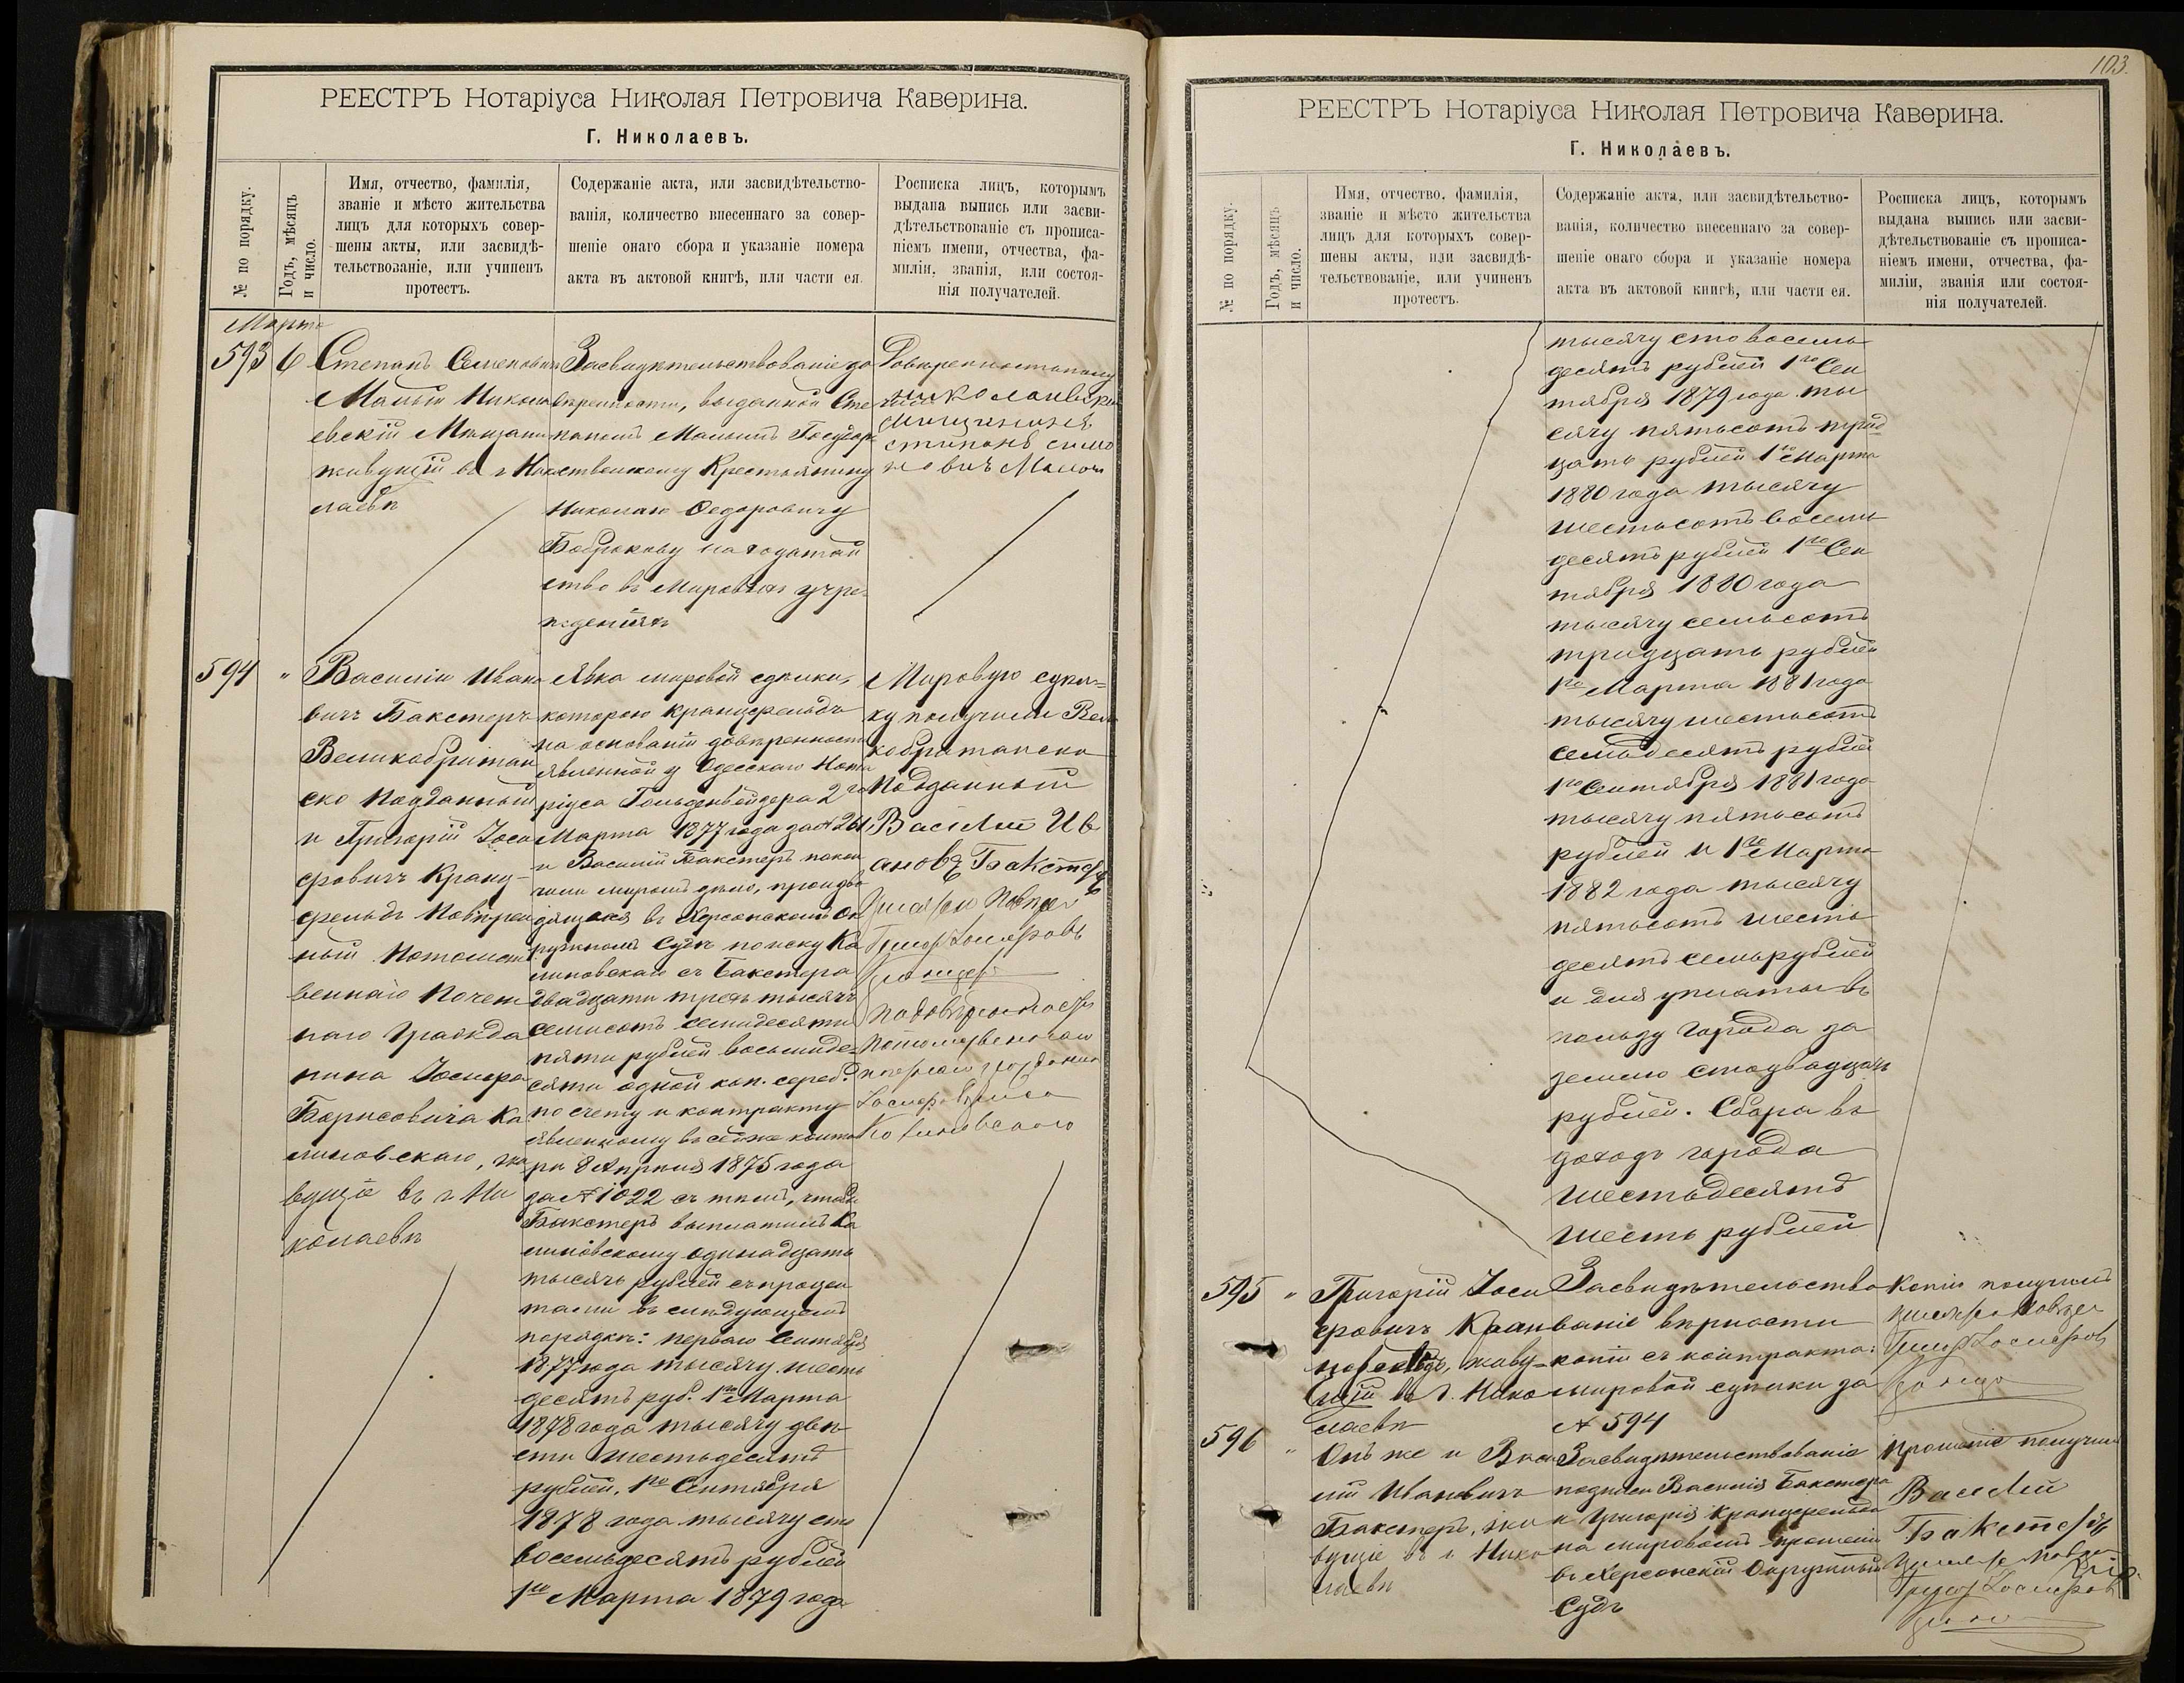 РЕЕСТРЪ Нотаріуса Николая Петровича Каверина.
Г. Николаевъ.
№ по порядку.
Годъ, мѣсяцъ
и число.
Имя, отчество, фамилія,
званіе и мѣсто жительства
лицъ для которыхъ совер-
шены акты, или засвидѣ-
тельствованіе, или учиненъ
протестъ.
Содержаніе акта, или засвидѣтельство-
ванія, количество внесеннаго за совер-
шеніе онаго сбора и указаніе номера
акта въ актовой книгѣ, или части ея.
Росписка лицъ, которымъ
выдана выпись или засви-
дѣтельствованіе съ прописа-
ніемъ имени, отчества, фа-
миліи, званія, или состоя-
нія получателей.
Марта
593 6
Степанъ Семеновичъ
Малый Никола
евскій Мѣщанинъ
живущій въ г. Нико
лаевѣ
Засвидѣтельствованіе до
вѣренности, выданной Сте
паномъ Малымъ Государ
ственному Крестьянину
Николаю Ѳедоровичу
Боброкову на ходатай
ство въ Мировыхъ учре-
жденіяхъ
Николаевски
Мищанинъ
стипанъ симо
новичъ Малои
594 "
Василій Ивано
вичъ Бакстеръ
Великобритан
ско Подданный
и Григорій Іоси
фовичъ Кранц-
фельдъ Повѣрен
ный Потомст
веннаго Почет
наго Гражда
нина Іосифа
Борисовича Ка
линовскаго, жи
вущіе въ г. Ни
колаевѣ
Явка мировой сдѣлки,
которою Кранцфельдъ
на основаніи довѣренности
явленной у Одесскаго Нота
ріуса Гольденвейзера 2го
Марта 1877 года за № 261,
и Василій Бакстеръ покон
чили миромъ дѣло, производ
дящееся въ Херсонскомъ Ок
ружномъ Судѣ по иску Ка
линовскаго съ Бакстера
двадцати трехъ тысячъ
семисотъ семидесяти
пяти рублей восьмиде-
сяти одной коп. сереб.
по счету и контракту
явленному въ сей же конто
рѣ 8 Апрѣля 1875 года
за № 1022 съ тѣмъ, чтобы
Бакстеръ выплатилъ Ка
линовскому одинадцать
тысячъ рублей съ процен
тами въ слѣдующемъ
порядкѣ: перваго Сентября
1877 года тысячу шесть
десятъ руб. 1го Марта
1878 года тысячу двѣ
сти шестьдесятъ
рублей, 1го Сентября
1878 года тысячу сто
восемьдесятъ рублей
1го Марта 1879 года
Мировую сдѣл=
ку получили Вели
кобританско
Подданный
Василий Ив
ановъ Бакстеръ
Іосифа Бориса
Калиновскаго
103.
РЕЕСТРЪ Нотаріуса Николая Петровича Каверина.
Г. Николаевъ.
№ по порядку.
Годъ, мѣсяцъ
и число.
Имя, отчество, фамилія,
званіе и мѣсто жительства
лицъ для которыхъ совер-
шены акты, или засвидѣ-
тельствованіе, или учиненъ
протестъ.
Содержаніе акта, или засвидѣтельство-
ванія, количество внесеннаго за совер-
шеніе онаго сбора и указаніе номера
акта въ актовой книгѣ, или части ея.
Росписка лицъ, которымъ
выдана выпись или засви-
дѣтельствованіе съ прописа-
ніемъ имени, отчества, фа-
миліи, званія или состоя-
нія получателей.
тысячу сто восемь
десятъ рублей 1го Сен
тября 1879 года ты
сячу пятьсотъ трид
цать рублей 1го Марта
1880 года тысячу
шестьсотъ восемь
десятъ рублей 1го Сен
тября 1880 года
тысячу семьсотъ
тридцать рублей
1го Марта 1881 года
тысячу шестьсотъ
семьдесятъ рублей
1го Сентября 1881 года
тысячу пятьсотъ
рублей и 1го Марта
1882 года тысячу
пятьсотъ шесть
десятъ семь рублей
и для уплаты въ
пользу города за
землю сто двадцать
рублей. Сбора въ
доходъ города
шестьдесятъ
шесть рублей
595 "
Григорій Іоси
фовичъ Кран
цфельдъ, живу-
щій въ г. Нико
лаевѣ
Засвидѣтельство
ваніе вѣрности
копіи съ контракта:
мировой сдѣлки за
№ 594
Копію получилъ
596 "
Онъ же и Васи
лій Ивановичъ
Бакстеръ, жи
вущіе въ г. Нико
лаевѣ
Засвидѣтельствованіе
подписи Василія Бакстера
и Григорія Кранцфельда
на мировомъ прошеніи
въ Херсонскій Окружный
Судъ
Прошеніе получили
Василий
Бакстеръ